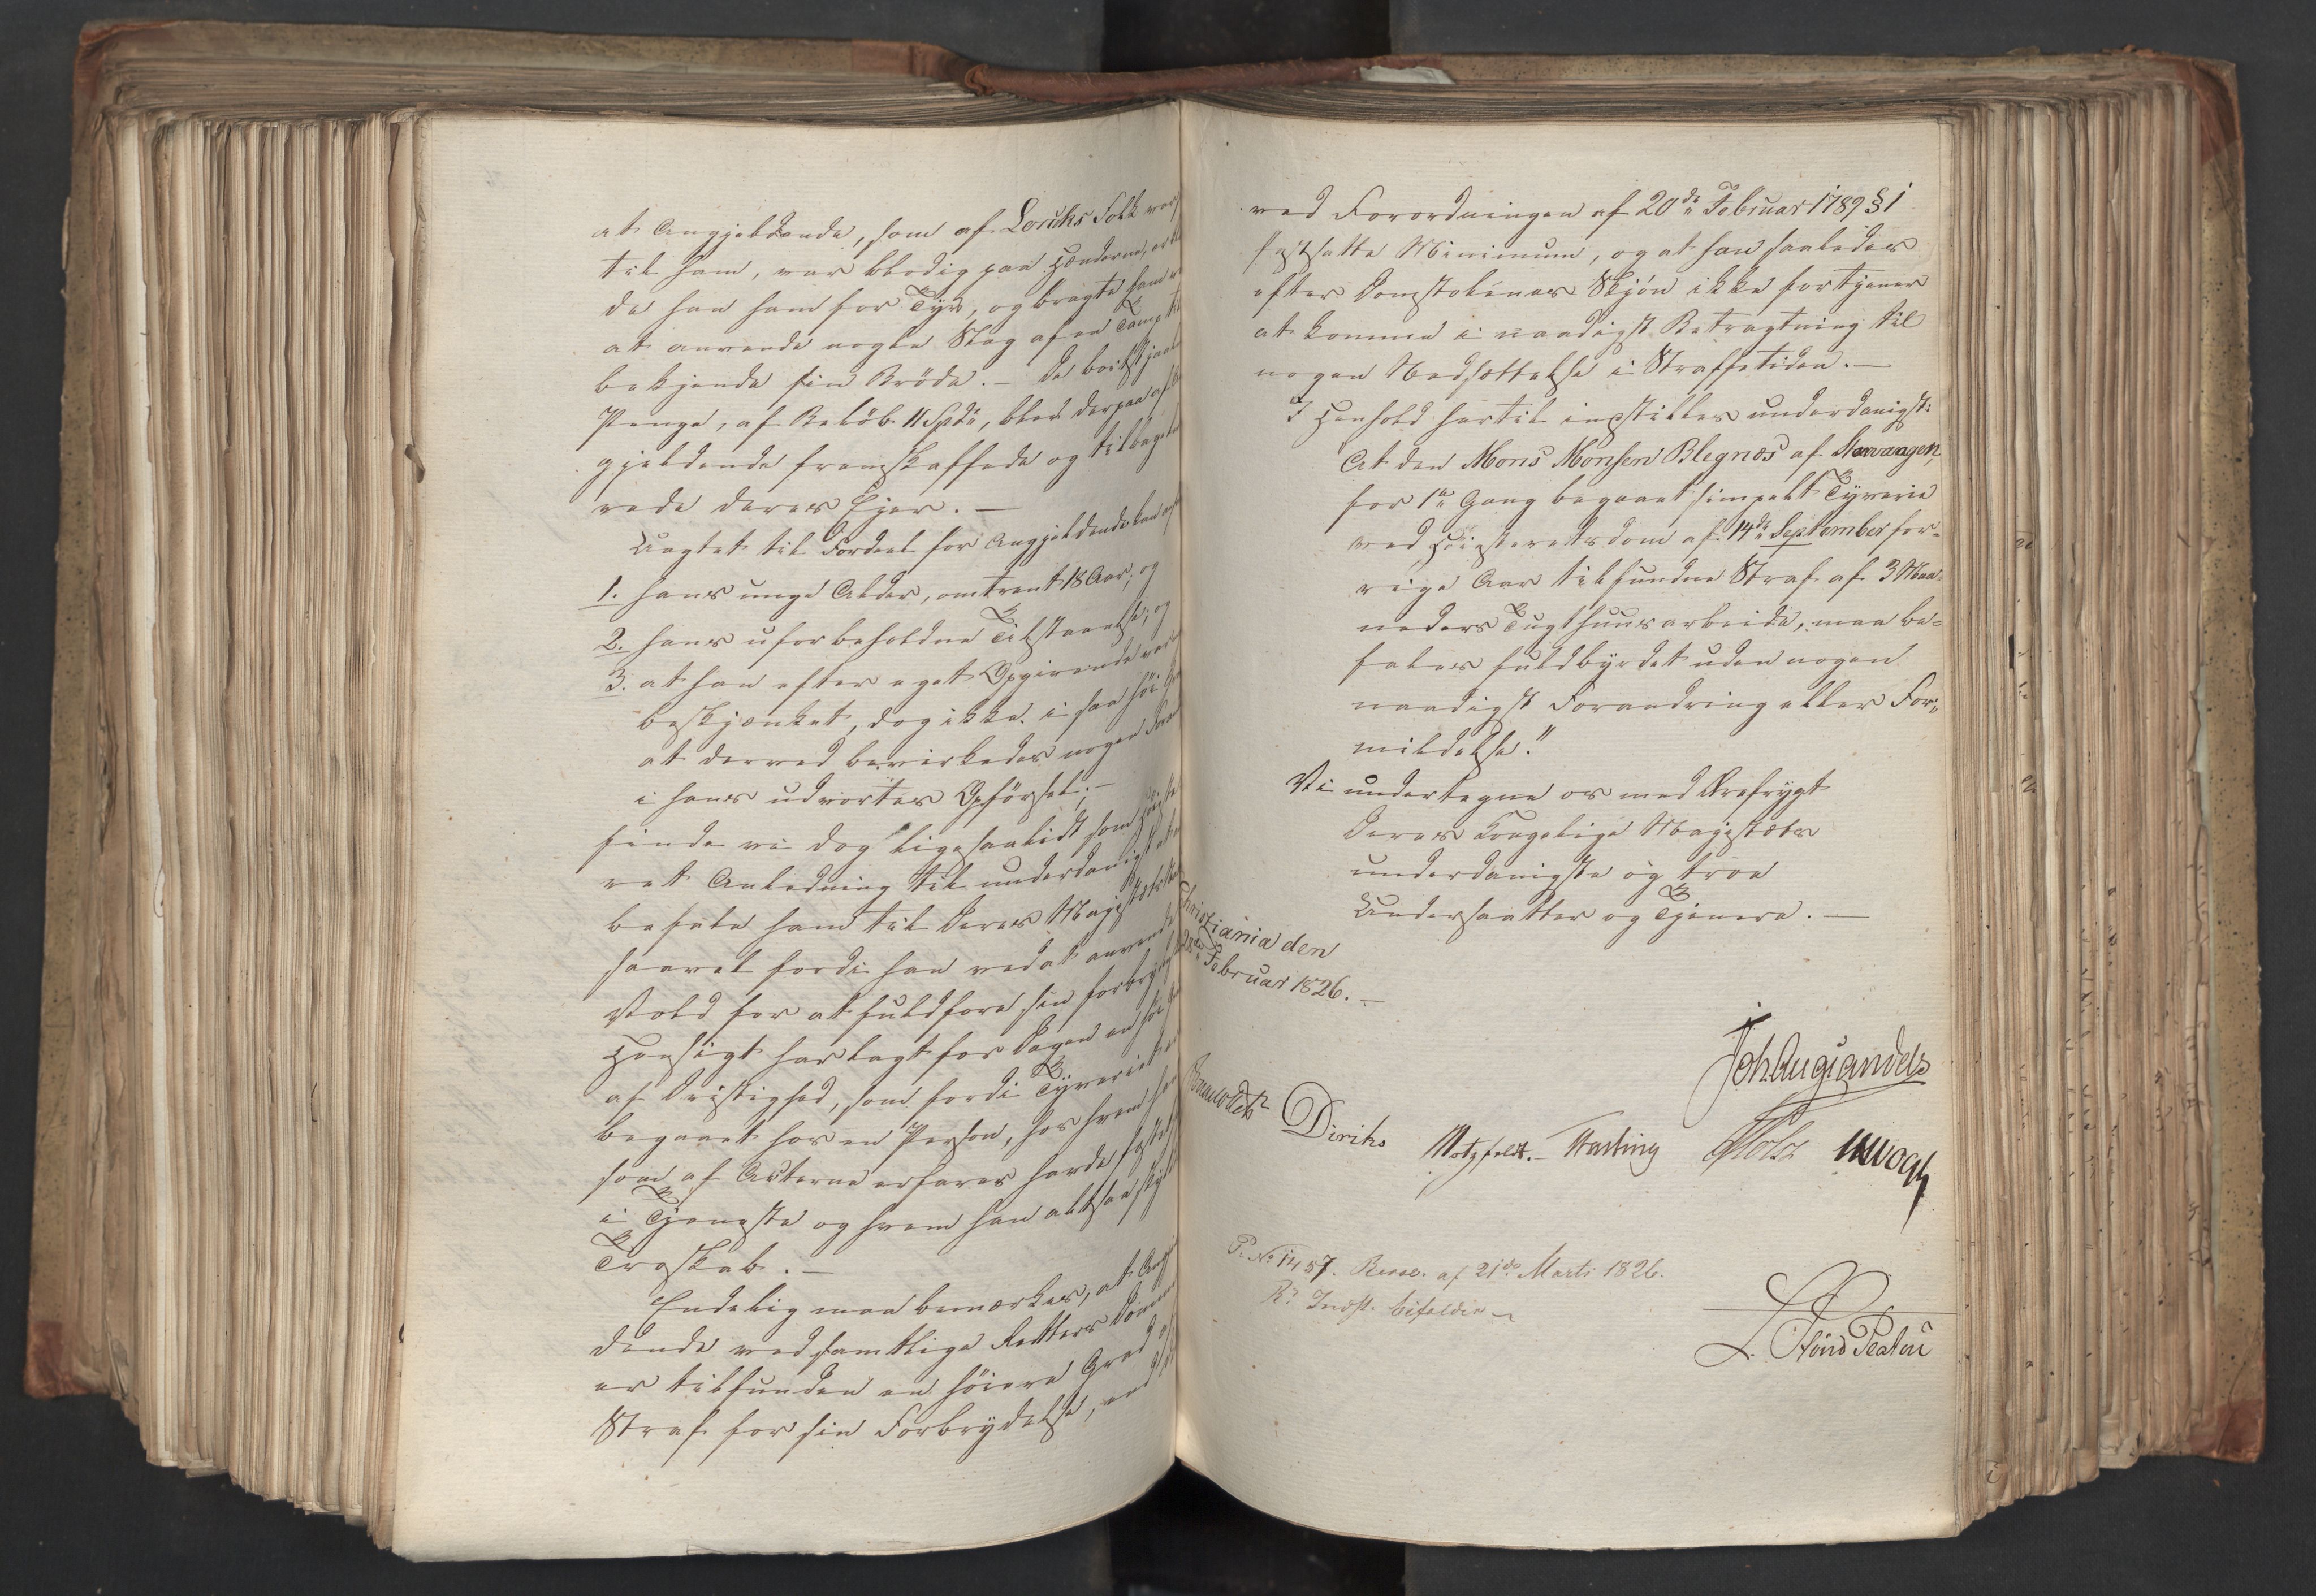 at Angjeldende, som af Loucks Folk var
til ham, var blodig paa Hænderne, er
de han ham for Tyv, og bragte ham
at anvende nogle Slag af en Tamp til
bekjende sin Brøde. – De bort stjaalne
Penge, af Beløb 11 Spd, blev derpaa af
gjeldende fremskaffede og tilbage
rede deres Ejer. –
Uagtet til Fordeel for Angjeldende kan
1. hans unge Alder, omtrent 18 Aar; og
2. hans uforbeholdne Tilstaaelse; og
3. at han efter eget Opgivende var
beskjænket, dog ikke i saa høi Grad
at derved bevirkedes nogen
i hans udvortes Opførsel; –
finde vi dog ligesaalidt som Høieste
ret Anledning til underdanigst at an
befale ham til Deres Majestæts
saavel fordi han ved at anvende
Vold for at fuldføre sin forbryd
Hensigt har lagt for Dagen en høi Grad
af Dristighed, som fordi Tyveriet er
begaaet hos en Person, hos hvem han
som af Acterne erfares havde fæstet
i Tjeneste og hvem han altsaa skyldte
Troskab. –
Endelig maa bemærkes, at Angjel
dende ved samtlige Retters Domme
er tilfunden en høiere Grad af
Straf for sin Forbrydelse, end det
ved Forordningen af 20de Februar 1789 § 1
fastsatte Minimum, og at han saaledes
efter Domstolenes Skjøn ikke fortjener
at komme i naadigst Betragtning til
nogen Nedsættelse i Straffetiden. –
I Henhold hertil indstilles underdanigst:
At den Mons Monsen Blegnæs af Stavanger,
for 1ste Gang begaaet simpelt Tyverie
ved Høiesteretsdom af 14de September for-
rige Aar tilfundne Straf af 3 Maa-
neders Tugthuusarbeide, maa be-
fales fuldbyrdet uden nogen
naadigst Forandring eller For-
mildelse."
Vi undertegne os med Ærefrygt
Deres Kongelige Majestæts
underdanigste og troe
Undersaatter og Tjenere. –
Christiania den
28de Februar 1826. –
Joh. Aug Sandels
Diriks Motzfeldt. – Fasting Holst JHVogt
P. No 1457. Resol. af 21de Marti 1826.
Rs Indst. bifaldes